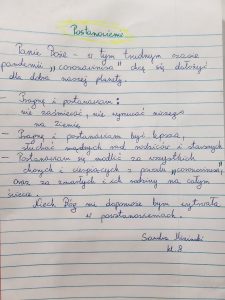 Postanowienie
Panie Boże - w tym trudnym czasie
pandemii „coronawirusa" chcę się dołożyć
dla dobra naszej planety.
- Pragnę i postanawiam:
nie zaśmiecać, nie wyrzucać niczego
na ziemię.
- Pragnę i postanawiam być lepsza,
słuchać mądrych rad rodziców i starszych
- Postanawiam się modlić za wszystkich
chorych i cierpiących z powodu „coronawirusa",
oraz za zmarłych i ich rodziny na całym
świecie.
Niech Bóg mi dopomoże bym wytrwała
w postanowieniach.
Sandra
kl. 8